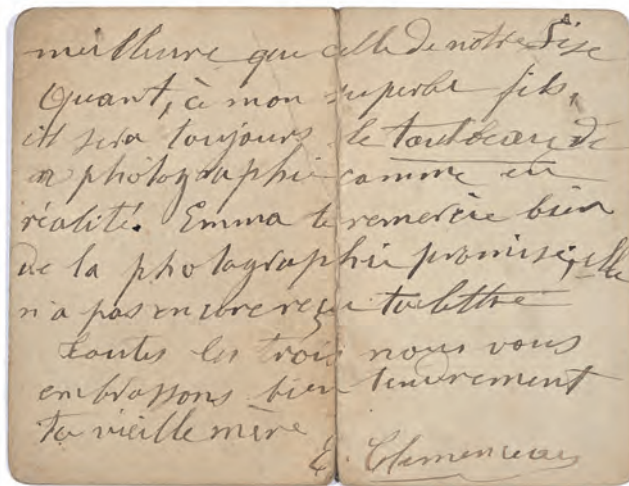 meilleure que celle de notre Lise
Quant, à mon superbe fils,
il sera toujours le tout beau de
en photographie comme en
réalité. Emma te remercie bien
de la photographie promise; elle
n'a pas encore reçu ta lettre
toutes les trois nous vous
embrassons bien tendrement
ta vieille mère
E. Clemenceau